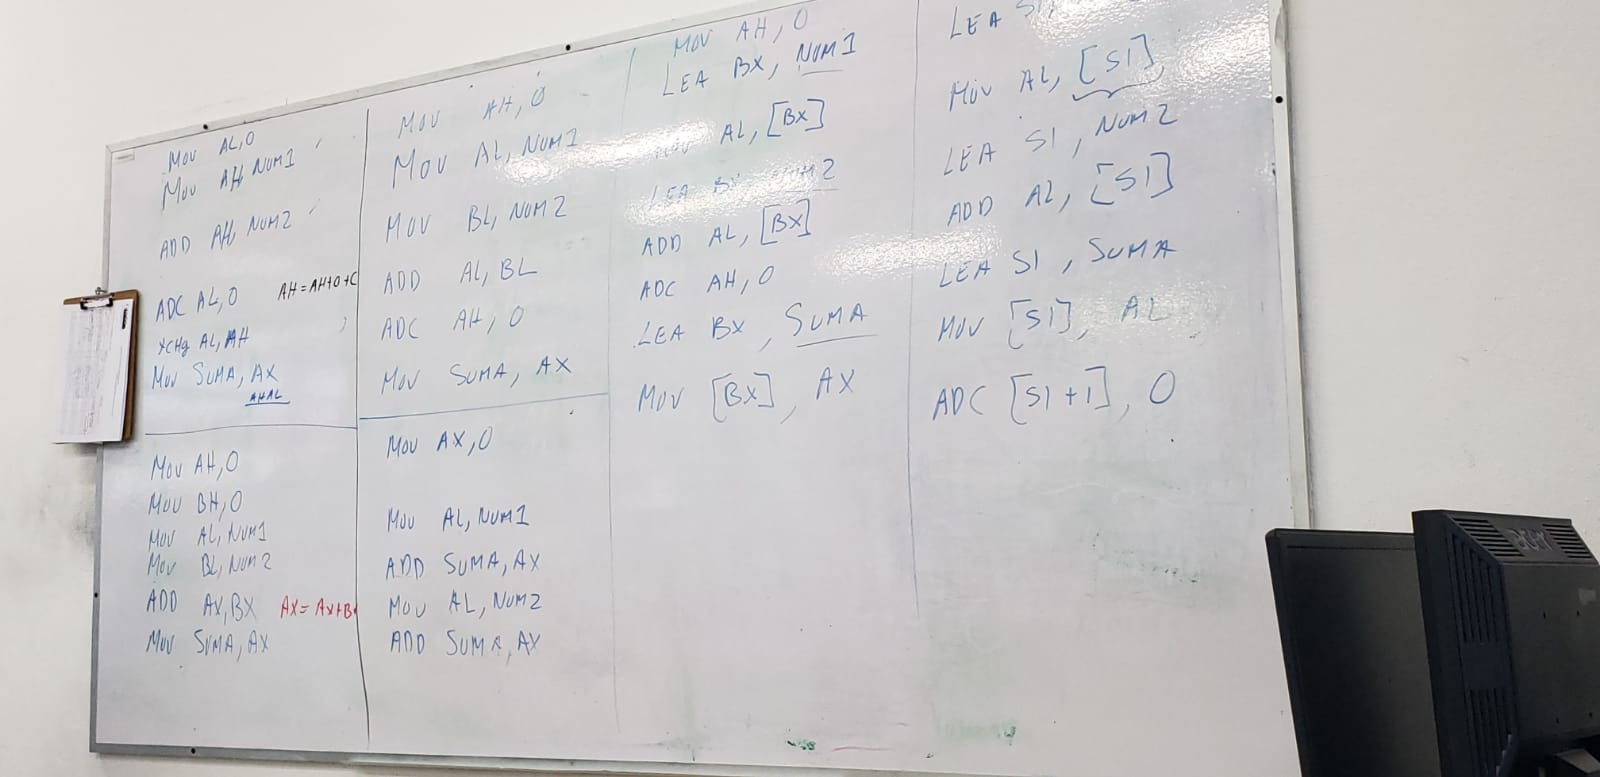 MOV AL,0
MOV AH, NUM1
ADD AH, NUM2
ADC AL, 0 AH=AH+0+C
XCHg AL, AH
MOV SUMA, AX
AHAL
MOV AH,0
MOV BH,0
MOV AL, NUM1
MOV BL, NUM2
ADD AX, BX AX=AX+B
MOV SUMA, AX
MOV AH, 0
MOV AL, NUM1
MOV BL, NUM2
ADD AL, BL
ADC AH, 0
MOV SUMA, AX
MOV AX, 0
MOV AL, NUM1
ADD SUMA, AX
MOV AL, NUM2
ADD SUMA, AX
MOV AH, 0
LEA BX, NUM1
MOV AL, [BX]
LEA BX NUM2
ADD AL, [BX]
ADC AH, 0
LEA BX, SUMA
MOV [BX], AX
LEA SI,
MOV AL, [SI]
LEA SI, NUM2
ADD AL, [SI]
LEA SI, SUMA
MOV [SI], AL
ADC [SI+1], 0